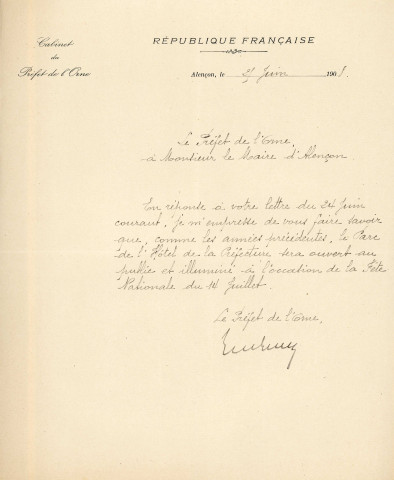 Cabinet
du
Préfet de l'Orne
RÉPUBLIQUE FRANÇAISE
Alençon, le Juin 190
Le Préfet de l'Orne
à Monsieur le Maire d'Alençon.
En réponse à votre lettre du 24 Juin
courant, je m'empresse de vous faire savoir
que, comme les années précédentes, le Parc
de l'Hôtel de la Préfecture sera ouvert au
public et illuminé à l'occasion de la Fête
Nationale du 14 Juillet.
Le Préfet de l'Orne,